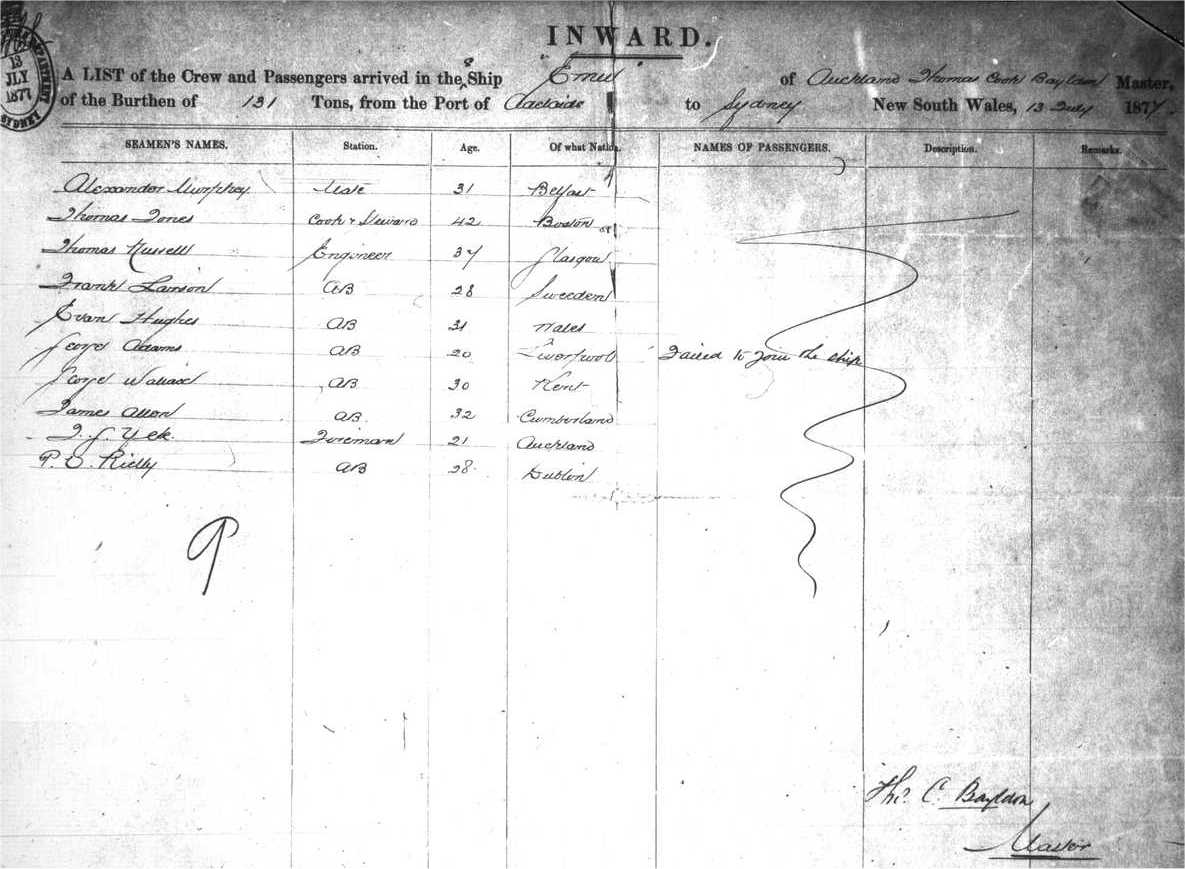 INWARD.
A LIST of the Crew and Passengers arrived in the S Ship of Auckland Thomas Cook Bayldon Master,
of the Burthen of 131 Tons, from the Port of Adelaide to Sydney New South Wales, 13 July 1877.
13
JLY
1877
SYDNEY
SEAMEN'S NAMES. Station. Age. Of what Nation. NAMES OF PASSENGERS. Description. Remarks.
Alexander Murphey Mate 31 Belfast
Thomas Jones Cook & Steward 42 Boston
Thomas Russell Engineer 37 Glasgow
Frank Larson AB 28 Sweden
Evan Hughes AB 31 Wales
George Adams AB 20 Liverpool Failed to join the ship
George Wallace AB 30 Kent
James Allen AB 32 Cumberland
Foreman 21 Auckland
P. O. Rielly AB 28 Dublin
9
Thos. C. Bayldon
Master